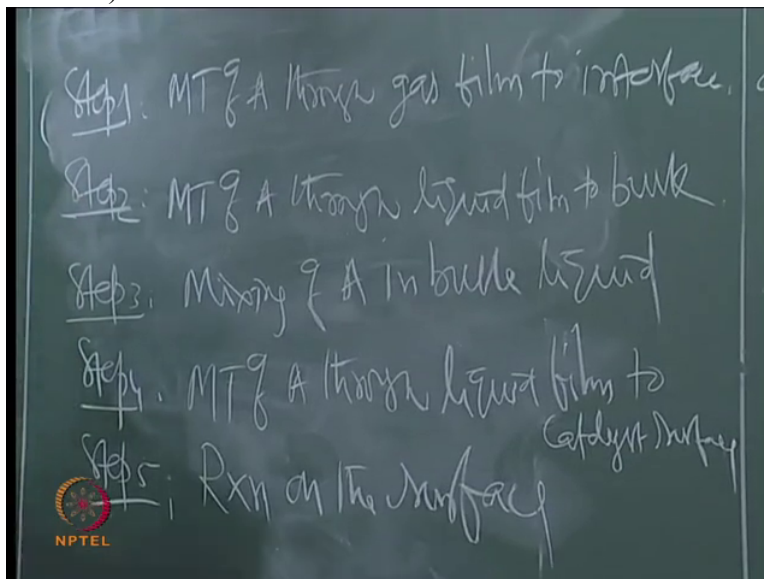 Step1: MT of A through gas film to interface.
Step2: MT of A through liquid film to bulk
Step3: Mixing of A in bulk liquid
Step4. MT of A through liquid film to
Catalyst surface
Step5; Rxn on the surface
NPTEL